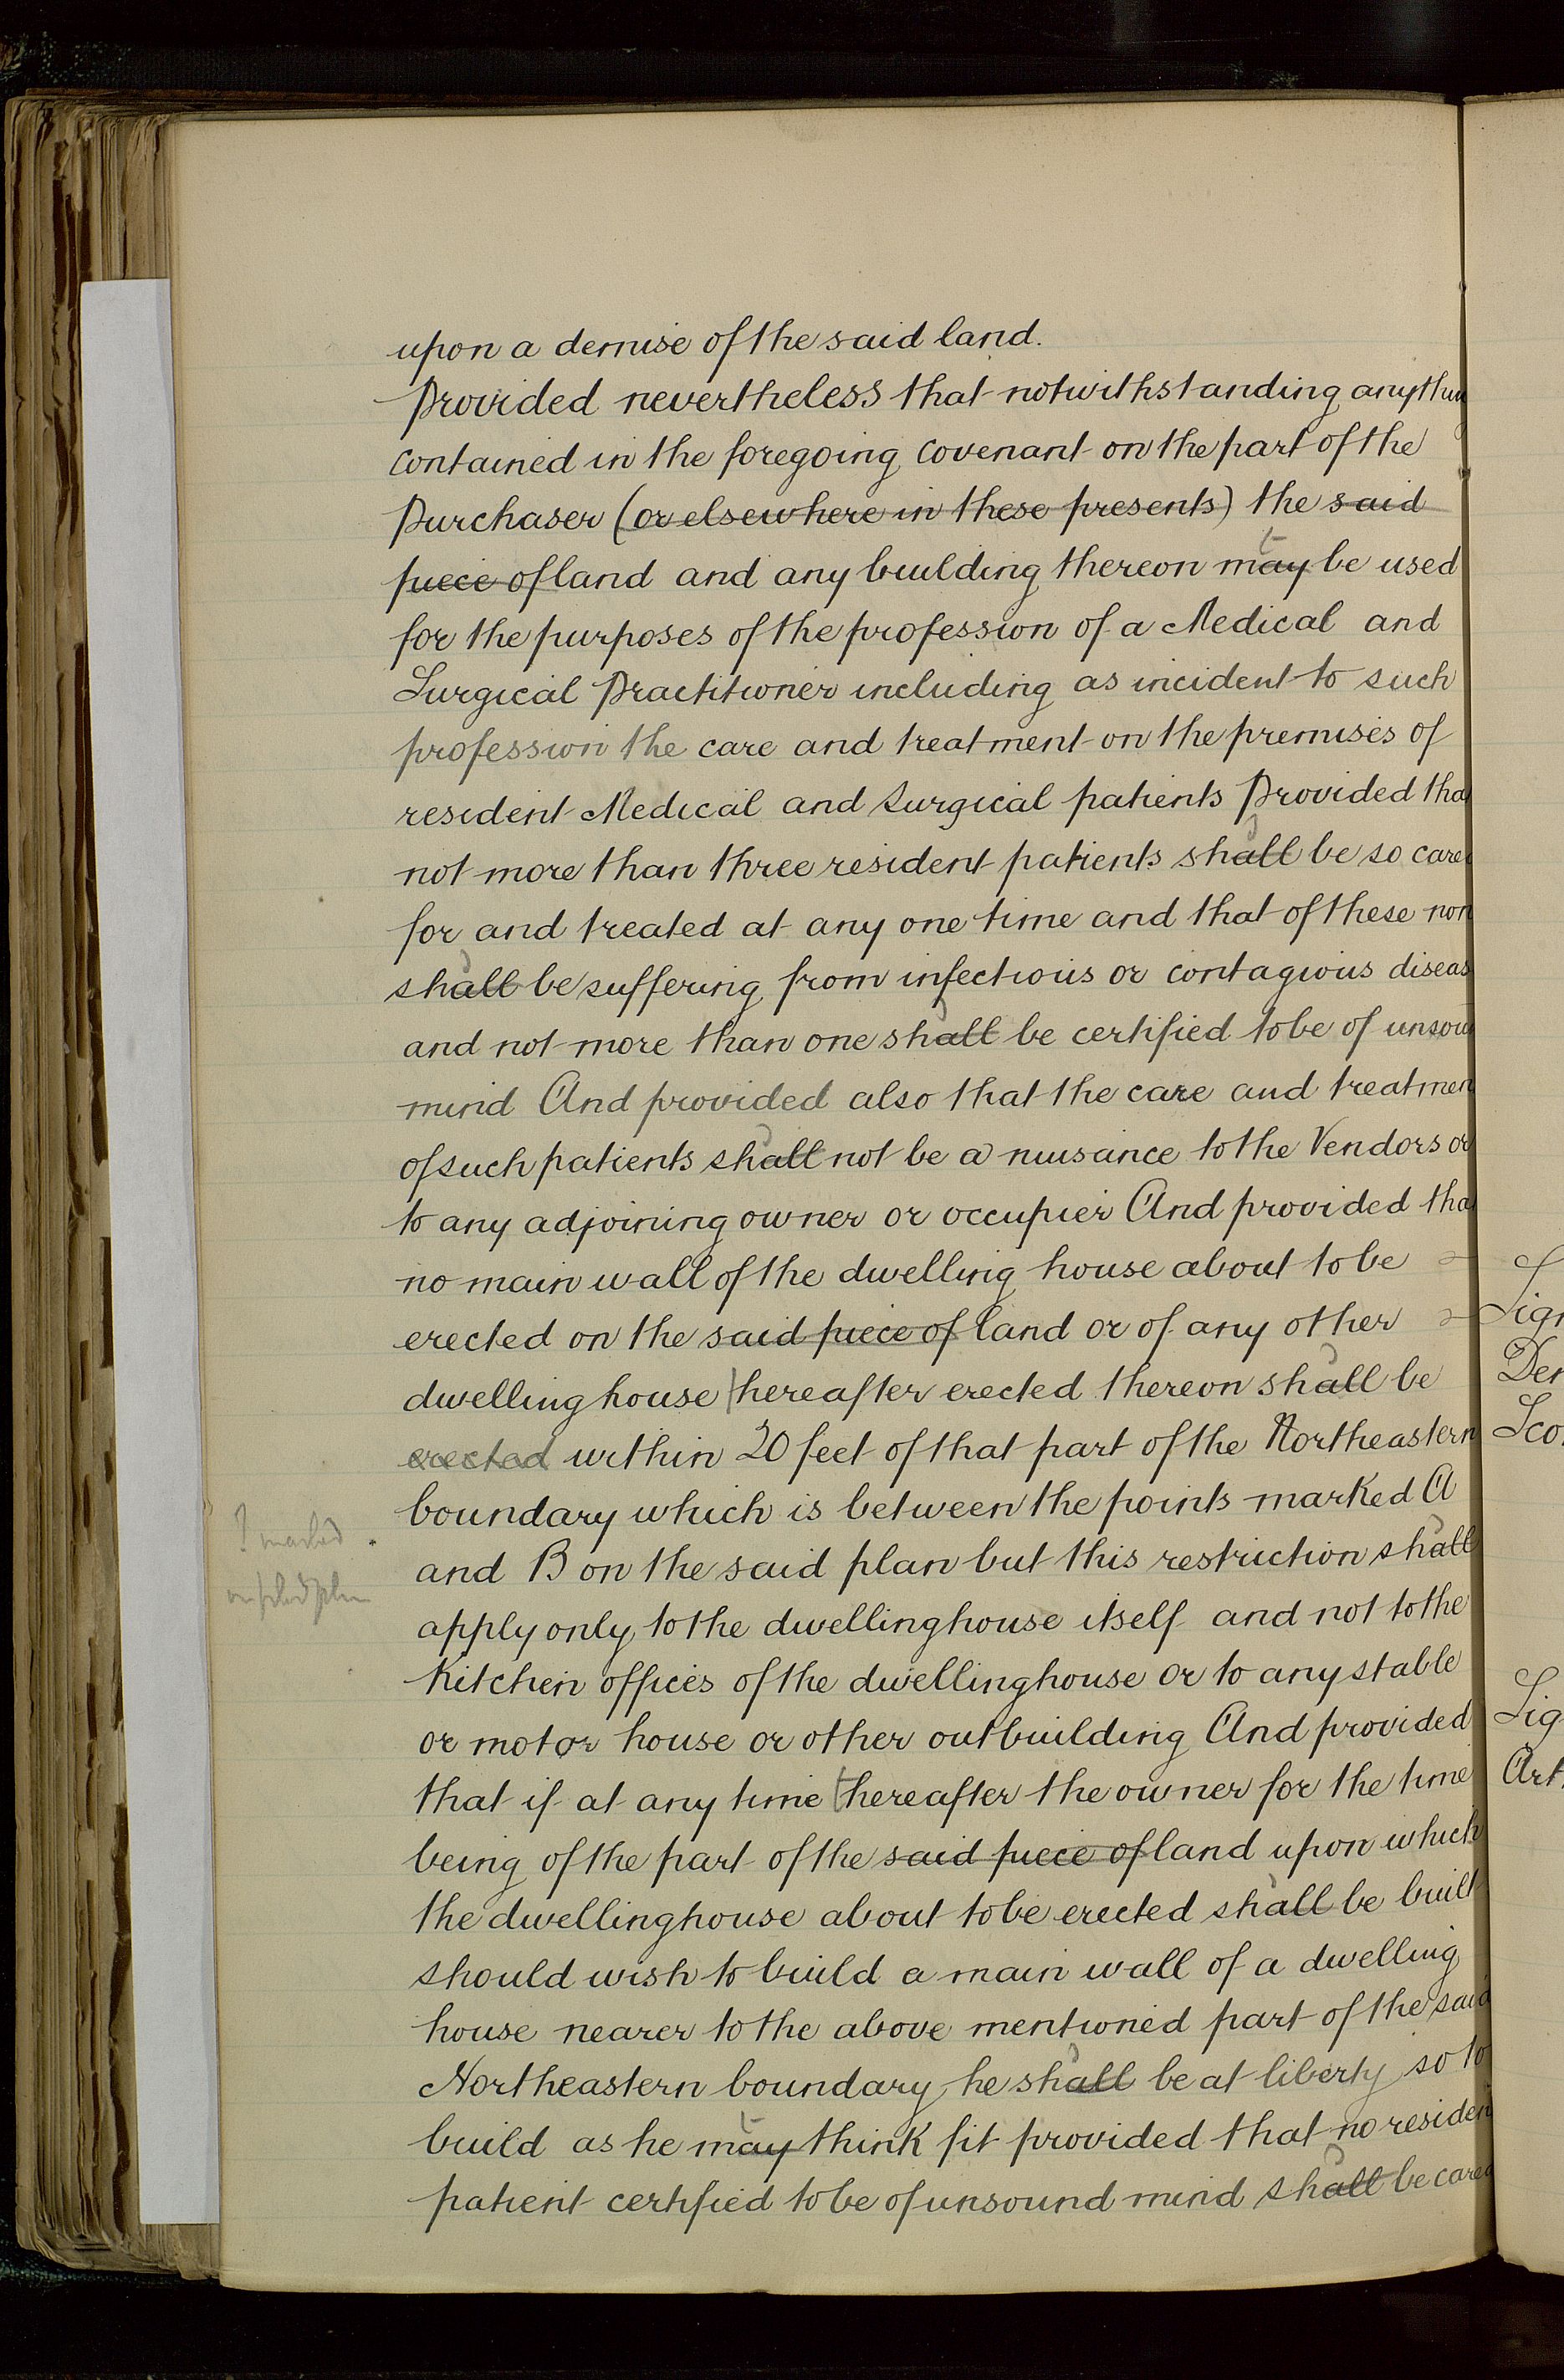 upon a demise of the said land.
Provided nevertheless that notwithstanding anythin
contained in the foregoing covenant on the part of the
Purchaser (or elsewhere in these presents) the said
piece of land and any building thereon may be used
for the purposes of the profession of a Medical and
Surgical Practitioner including as incident to such
profession the care and treatment on the premises of
resident Medical and Surgical patients Provided tha
not more than three resident patients shall be so care
for and treated at any one time and that of these non
shall be suffering from infectious or contagious diseas
and not more than one shall be certified to be of unsou
mind And provided also that the care and treatmen
of such patients shall not be a nuisance to the Vendors or
to any adjoining owner or occupier And provided tha
no main wall of the dwelling house about to be
erected on the said piece of land or of any other
dwelling house hereafter erected thereon shall be
erected within 20 feet of that part of the Northeastern
boundary which is between the points marked A
and B on the said plan but this restriction shall
apply only to the dwellinghouse itself and not to the
Kitchen offices of the dwellinghouse or to any stable
or motor house or other outbuilding And provided
that if at any time hereafter the owner for the time
being of the part of the said piece of land upon which
the dwellinghouse about to be erected shall be built
should wish to build a main wall of a dwelling
house nearer to the above mentioned part of the said
Northeastern boundary he shall be at liberty so to
build as he may think fit provided that no residen
patient certified to be of unsound mind shall be cared
? marked
Sign
Der
Sco
Sig
Art